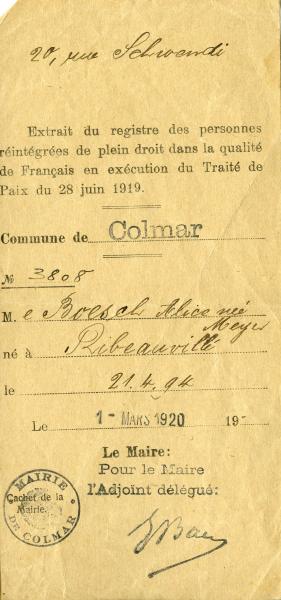 20, rue Schwendi
Extrait du registre des personnes
réintégrées de plein droit dans la qualité
de Français en exécution du Traité de
Paix du 28 juin 1919.
Commune de Colmar
№ 3808
M. e Boesch Alice née
Meyer
né à Ribeauvillé
le 21.4.94
Le 1- MARS 1920 19
Le Maire:
Pour le Maire
l'Adjoint délégué:
MAIRIE
Cachet de la
Mairie.
DE COLMAR